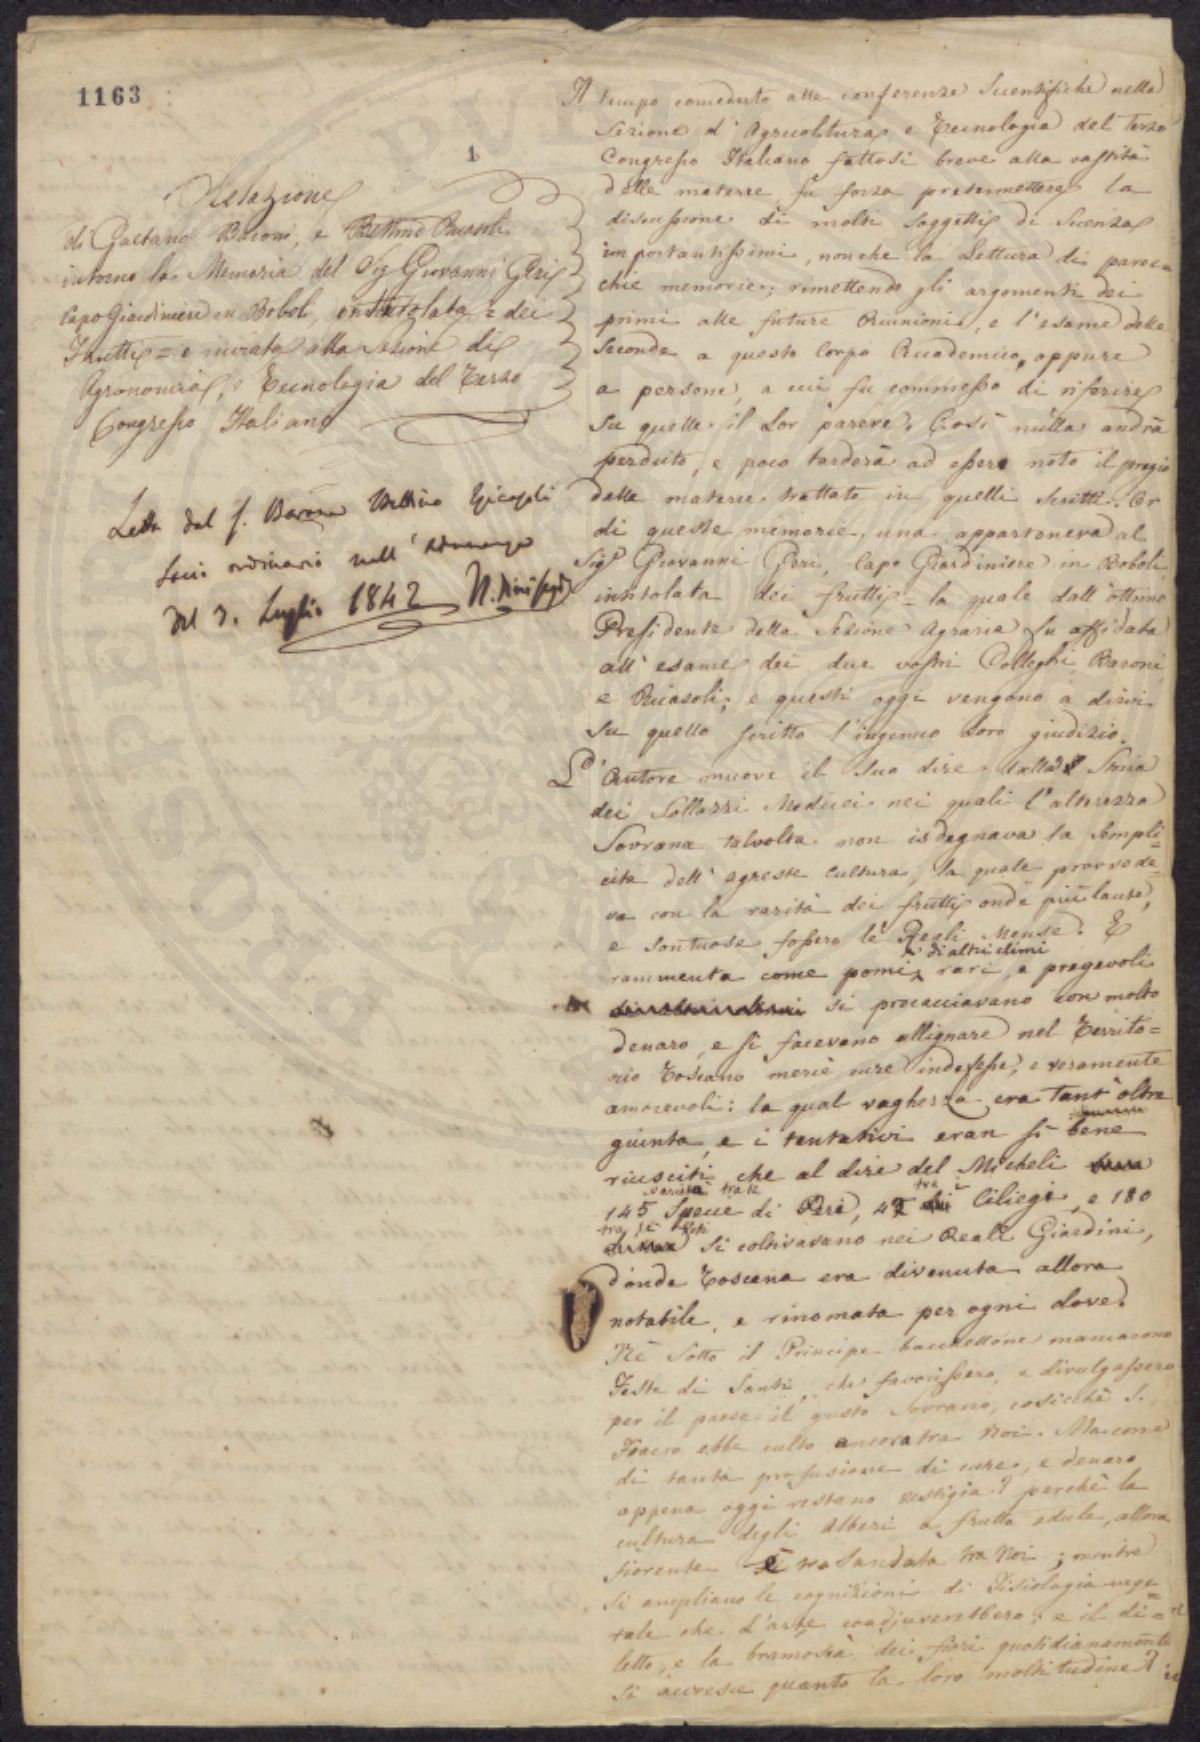 1163
1
Relazione
di Gaetano Baroni, e Bettino Ricasoli
intorno la Memoria del Sig Giovanni Geri
Capo Giardiniere in Boboli, intitolata = dei
Frutti = e inviata alla Sezione di
Agronomia, e Tecnologia del Terzo
Congresso Italiano
Letta dal S. Barone Bettino Ricasoli
Socio ordinario nell' Adunanza
del 3. Luglio 1842
Il tempo conceduto alle conferenze Scientifiche nella
Sezione d' Agricoltura e Tecnologia del terzo
Congresso Italiano fattosi breve alla vastità
delle materie fu forza pretermettere la
discussione di molti Soggetti di Scienza
importantissimi, nonche la Lettura di parec-
chie memorie; rimettendo gli argomenti dei
primi alle future Riunioni, e l'esame delle
Seconde a questo Corpo Accademico, oppure
a persone, a cui fu commesso di riferire
Su quelle il Lor parere. Così nulla andrà
perduto, e poco tarderà ad essere noto il pregio
delle materie trattate in quelli Scritti. Or
di queste memorie, una apparteneva al
Sigr Giovanni Geri, Capo Giardiniere in Boboli,
intitolata dei frutti = la quale dall' ottimo
Presidente della Sezione Agraria fu affidata
all' esame dei due vostri Colleghi Baroni
e Ricasoli; e questi oggi vengono a dirvi
Su quello scritto l'ingenuo Loro giudizio.
L' Autore muove il Suo dire dalla Storia
dei Sollazzi Medicei nei quali l'alterezza
Sovrana talvolta non isdegnava la Sempli=
cità dell' agreste Cultura, la quale provvede=
va con la rarità dei frutti onde più laute,
e Sontuose fossero le Regli Mense. E
di altri climi
rammenta come pomi rari, e pregevoli
si procacciavano con molto
denaro, e si facevano allignare nel Territo=
rio Toscano mercè cure indefesse, e veramente
amorevoli: la qual vaghezza era tant' oltre
giunta, e i tentativi eran sì bene
riusciti che al dire del Micheli
varietà tra le tra i
145 Specie di Pere, 47 Ciliegi, e 180
tra
si coltivavano nei Reali Giardini,
donde Toscana era divenuta allora
notabile, e rinomata per ogni dove.
Nè Sotto il Principe bacchettone mancarono
Feste di Santi, che favorissero, e divulgassero
per il paese il gusto Sovrano, cosicchè S.
Fiacro ebbe culto ancora tra Noi. Ma come
di tanta profusione di cure, e denaro
appena oggi restano vestigia? perchè la
cultura degli Alberi a frutto edule, allora
fiorente è trasandata tra Noi; mentre
Si ampliano le cognizioni di Fisiologia vege=
tale che L'arte coadjuverebbero; e il di=
letto, e la bramosia dei fiori quotidianamente
Si accresce quanto la loro moltitudine?